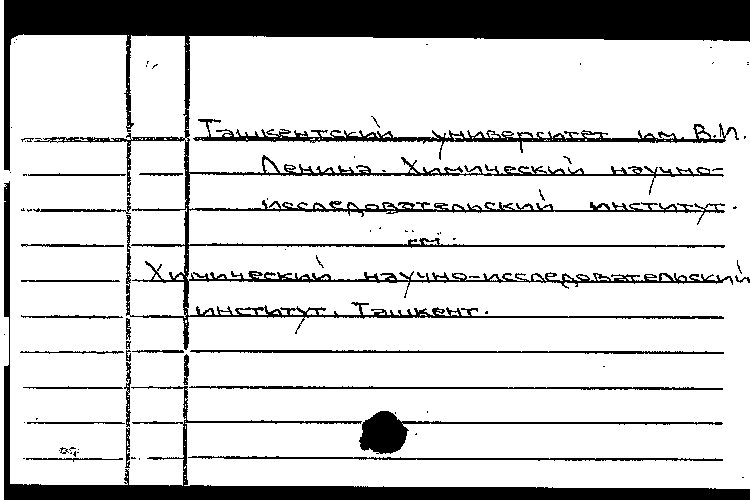 Ташкентский университет им. В.И.
Ленина. Химический научно-
исследовательский институт.
см.
Химический научно-исследовательский
институт, Ташкент.